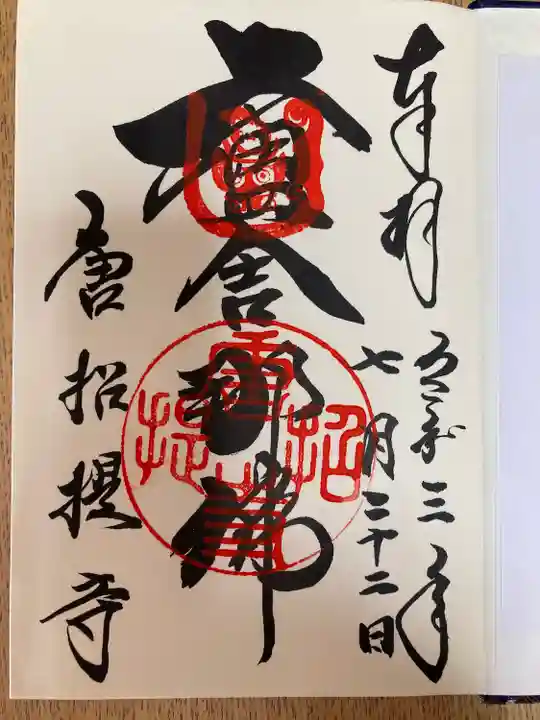 奉拝
令和三年
七月二十二日
盧舎那佛
唐招提寺